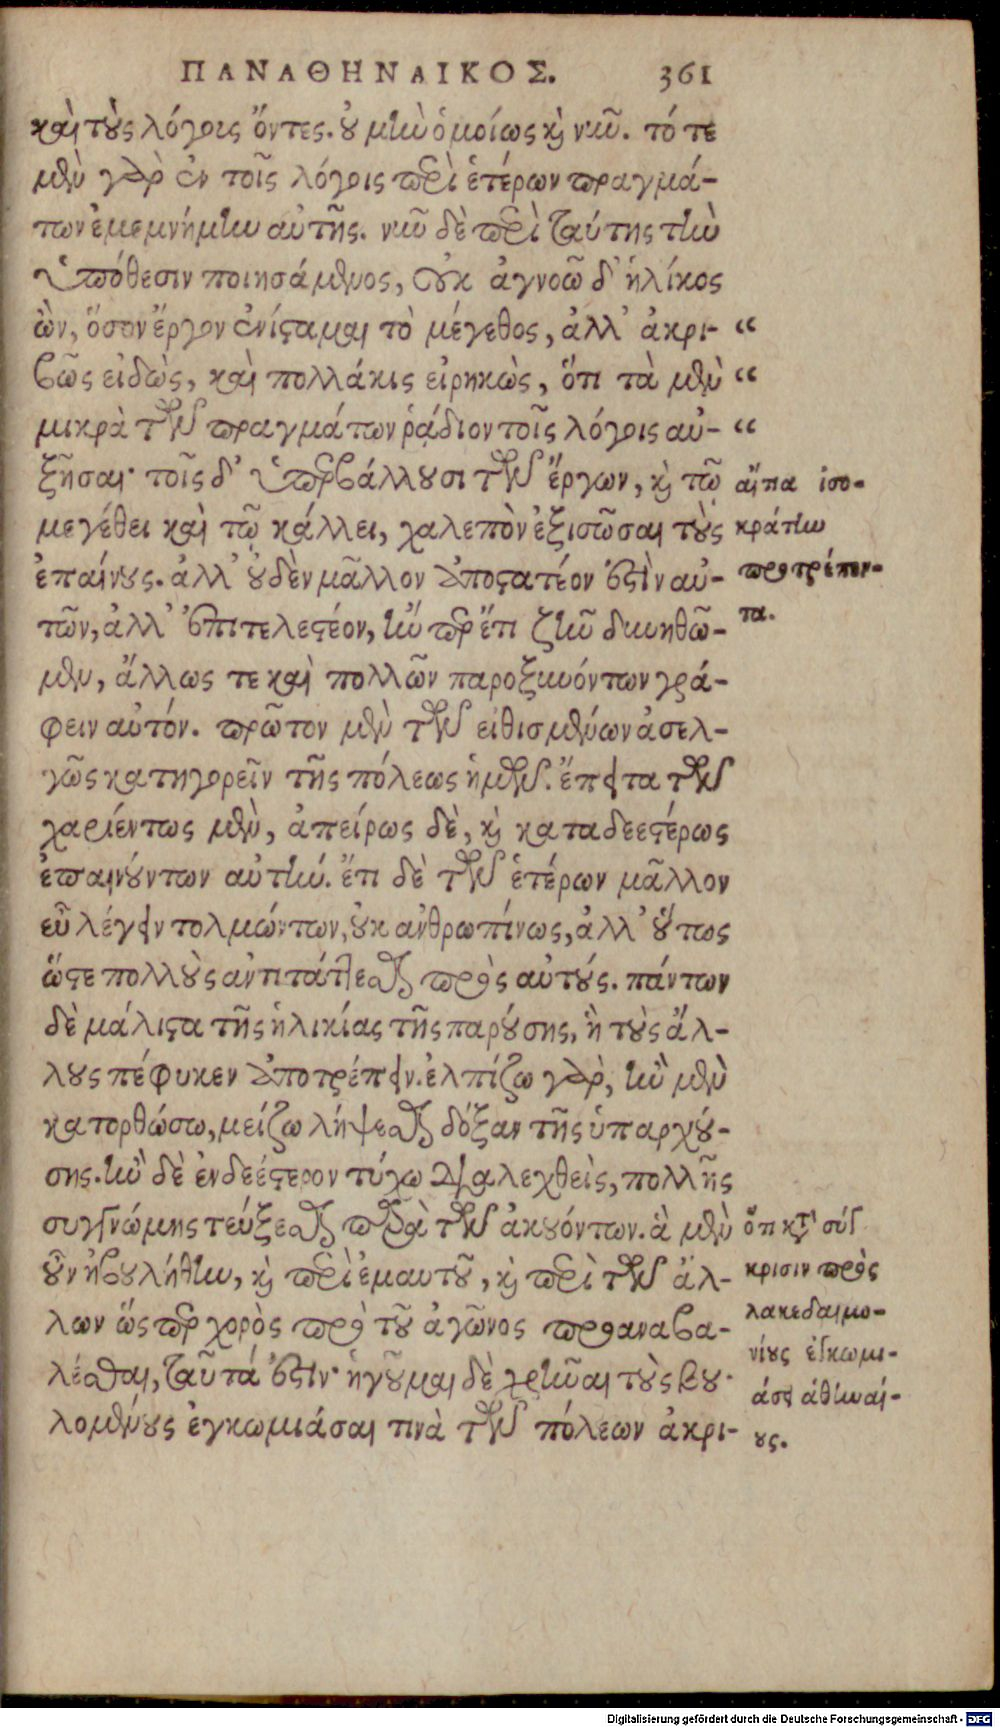 ΠΑΝΑΘΗΝΑΙΚΟΣ. 361
καὶ τοὺς λόγοις ὄντες. οὐ μὴν ὁμοίως καὶ νῦν. τό τε
μὲν γὰρ ἐν τοῖς λόγοις περὶ ἑτέρων πραγμά-
των ἐμεμνήμην αὐτῆς. νῦν δὲ περὶ ταύτης τὴν
ὑπόθεσιν ποιησάμενος, οὐκ ἀγνοῶ δ' ἡλίκος
ὢν, ὅσον ἔργον ἐνίσταμαι τὸ μέγεθος, ἀλλ' ἀκρι- “
βῶς εἰδὼς, καὶ πολλάκις εἰρηκὼς, ὅτι τὰ μὲν “
μικρὰ τῶν πραγμάτων ῥᾴδιον τοῖς λόγοις αὐ- “
ξῆσαι· τοῖς δ' ὑπερβάλλουσι τῶν ἔργων, καὶ τῷ
μεγέθει καὶ τῷ κάλλει, χαλεπὸν ἐξισῶσαι τοὺς
ἐπαίνους. ἀλλ' οὐδὲν μᾶλλον ἀποστατέον ἐστὶν αὐ-
τῶν, ἀλλ' ἐπιτελεστέον, ἤν περ ἔτι ζῆν δυνηθῶ-
μεν, ἄλλως τε καὶ πολλῶν παροξυνόντων γρά-
φειν αὐτόν. πρῶτον μὲν τῶν εἰθισμένων ἀσελ-
γῶς κατηγορεῖν τῆς πόλεως ἡμῶν. ἔπειτα τῶν
χαριέντως μὲν, ἀπείρως δὲ, καὶ καταδεεστέρως
ἐπαινούντων αὐτήν. ἔτι δὲ τῶν ἑτέρων μᾶλλον
εὖ λέγειν τολμώντων, οὐκ ἀνθρωπίνως, ἀλλ' οὕτως
ὥστε πολλοὺς ἀντιτάττεσθαι πρὸς αὐτούς. πάντων
δὲ μάλιστα τῆς ἡλικίας τῆς παρούσης, ἣ τοὺς ἄλ-
λους πέφυκεν ἀποτρέπειν. ἐλπίζω γὰρ, ἢν μὲν
κατορθώσω, μείζω λήψεσθαι δόξαν τῆς ὑπαρχού-
σης. ἢν δὲ ἐνδεέστερον τύχω διαλεχθεὶς, πολλῆς
συγγνώμης τεύξεσθαι παρὰ τῶν ἀκουόντων. ἃ μὲν
οὖν ἠβουλήθην, καὶ περὶ ἐμαυτοῦ, καὶ περὶ τῶν ἄλ-
λων ὥσπερ χορὸς πρὸ τοῦ ἀγῶνος προαναβα-
λέσθαι, ταῦτά ἐστιν· ἡγοῦμαι δὲ χρῆναι τοὺς βου-
λομένους ἐγκωμιάσαι τινὰ τῶν πόλεων ἀκρι-
αἴτια ἰσο-
κράτην
προτρέπον-
τα.
ὅτι κατὰ σύγ
κρισιν πρὸς
λακεδαιμο-
νίους ἐγκωμι-
άσει ἀθηναί-
ους.
Digitalisierung gefördert durch die Deutsche Forschungsgemeinschaft - DFG